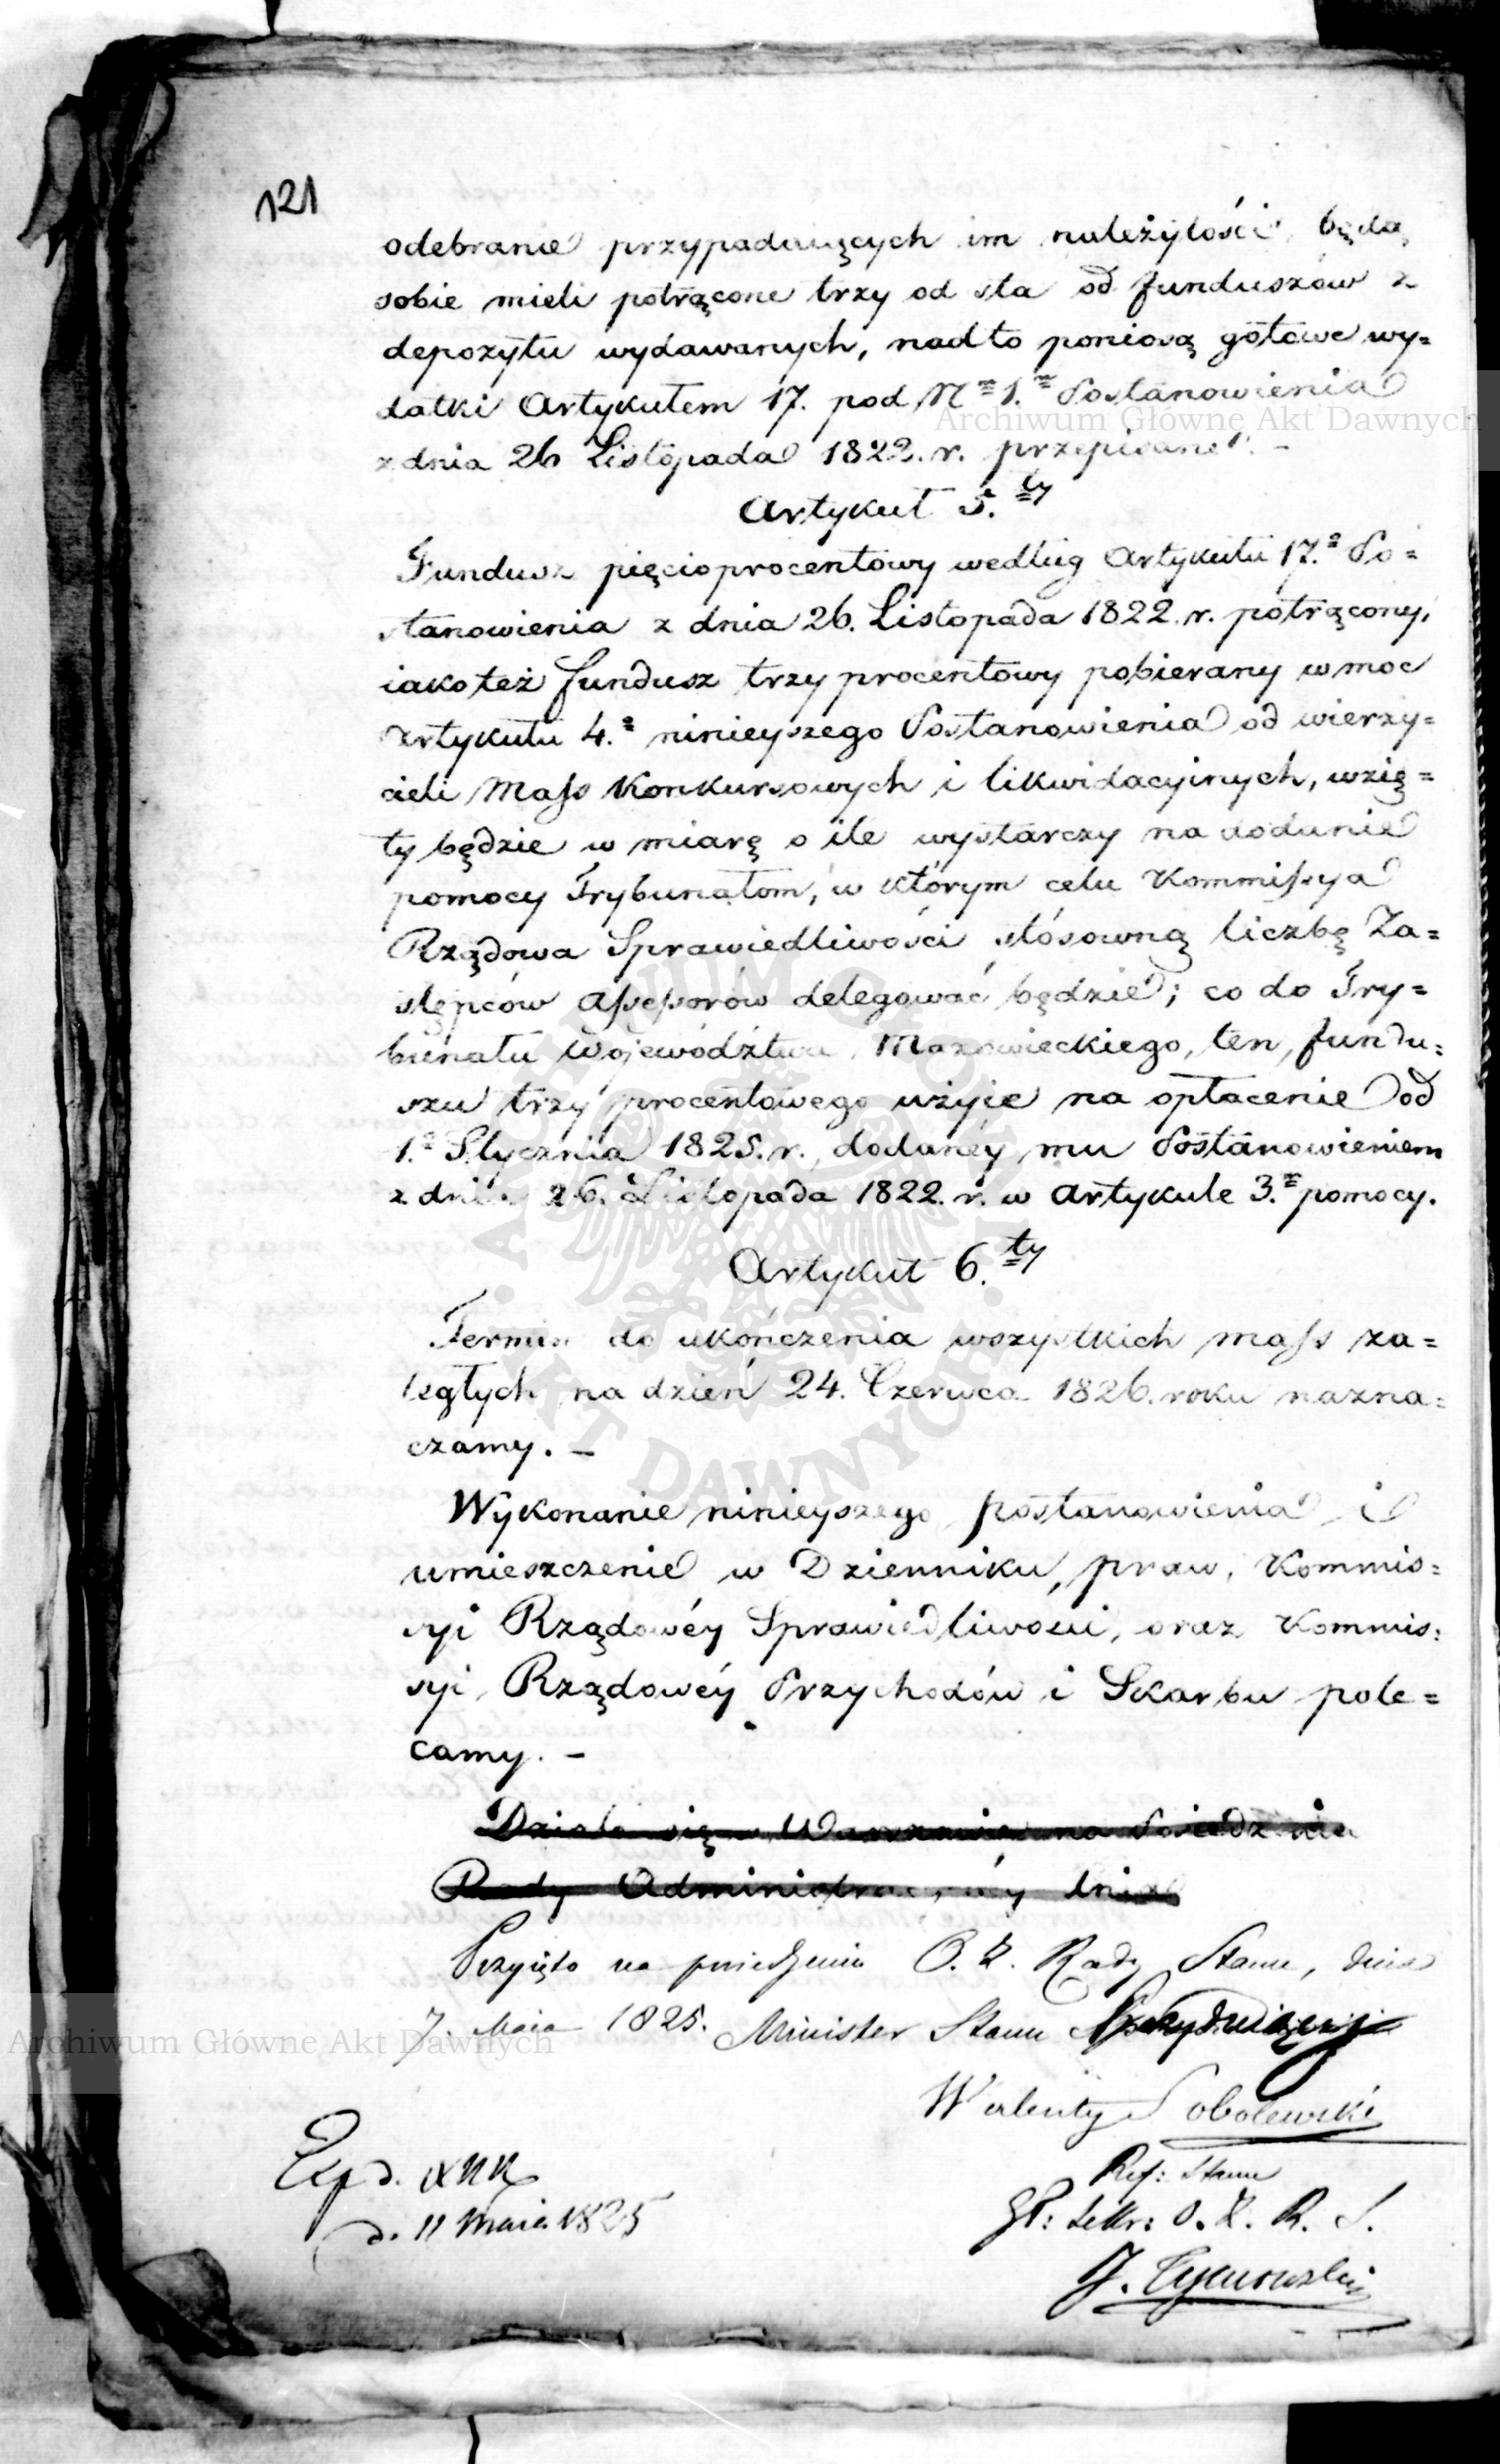 121
odebranie przypadaiących im należytości, będą
sobie mieli potrącone trzy od sta od funduszów z
depozytu wydawanych, nadto poniosą gotowe wy=
datki Artykułem 17. pod Nrm 1.m Postanowienia
z dnia 26 Listopada 1822. r. przepisane. –
Artykuł 5.ty
Fundusz pięcioprocentowy według Artykułu 17.o Po=
stanowienia z dnia 26. Listopada 1822. r. potrącony,
iako też fundusz trzy procentowy pobierany w moc
Artykułu 4.o ninieyszego Postanowienia od wierzy=
cieli Mass Konkursowych i likwidacyinych, wzię=
ty będzie w miarę o ile wystarczy na dodanie
pomocy Trybunałom, w którym celu Kommissya
Rządowa Sprawiedliwości stósowną liczbę Za=
stępców Assessorów delegować będzie; co do Try=
bunału Województwa Mazowieckiego, ten, fundu=
szu trzy procentowego użyie na opłacenie od
1.o Stycznia 1825. r. dodanéy mu Postanowieniem
z dnia 26. Listopada 1822. r. w Artykule 3.m pomocy.
Artykuł 6.ty
Termin do ukończenia wszystkich mass za=
ległych na dzień 24. Czerwca 1826. roku nazna=
czamy. –
Wykonanie ninieyszego postanowienia i
umieszczenie w Dzienniku praw, Kommis=
syi Rządowéy Sprawiedliwości, oraz Kommis=
syi Rządowéy Przychodów i Skarbu pole=
camy. –
Działo się w Warszawie na Posiedzeniu
Rady Administracyinéy dnia
Przyięto na posiedzeniu O. Z. Rady Stanu, dnia
7. Maia 1825. Minister Stanu
Walenty Sobolewski
Ref: Stanu
Sekr: O. Z. R. S.
Exp d.
d. 11 Maia 1825
Archiwum Główne Akt Dawnych
ARCHIWUM GŁÓWNE AKT DAWNYCH
Archiwum Główne Akt Dawnych